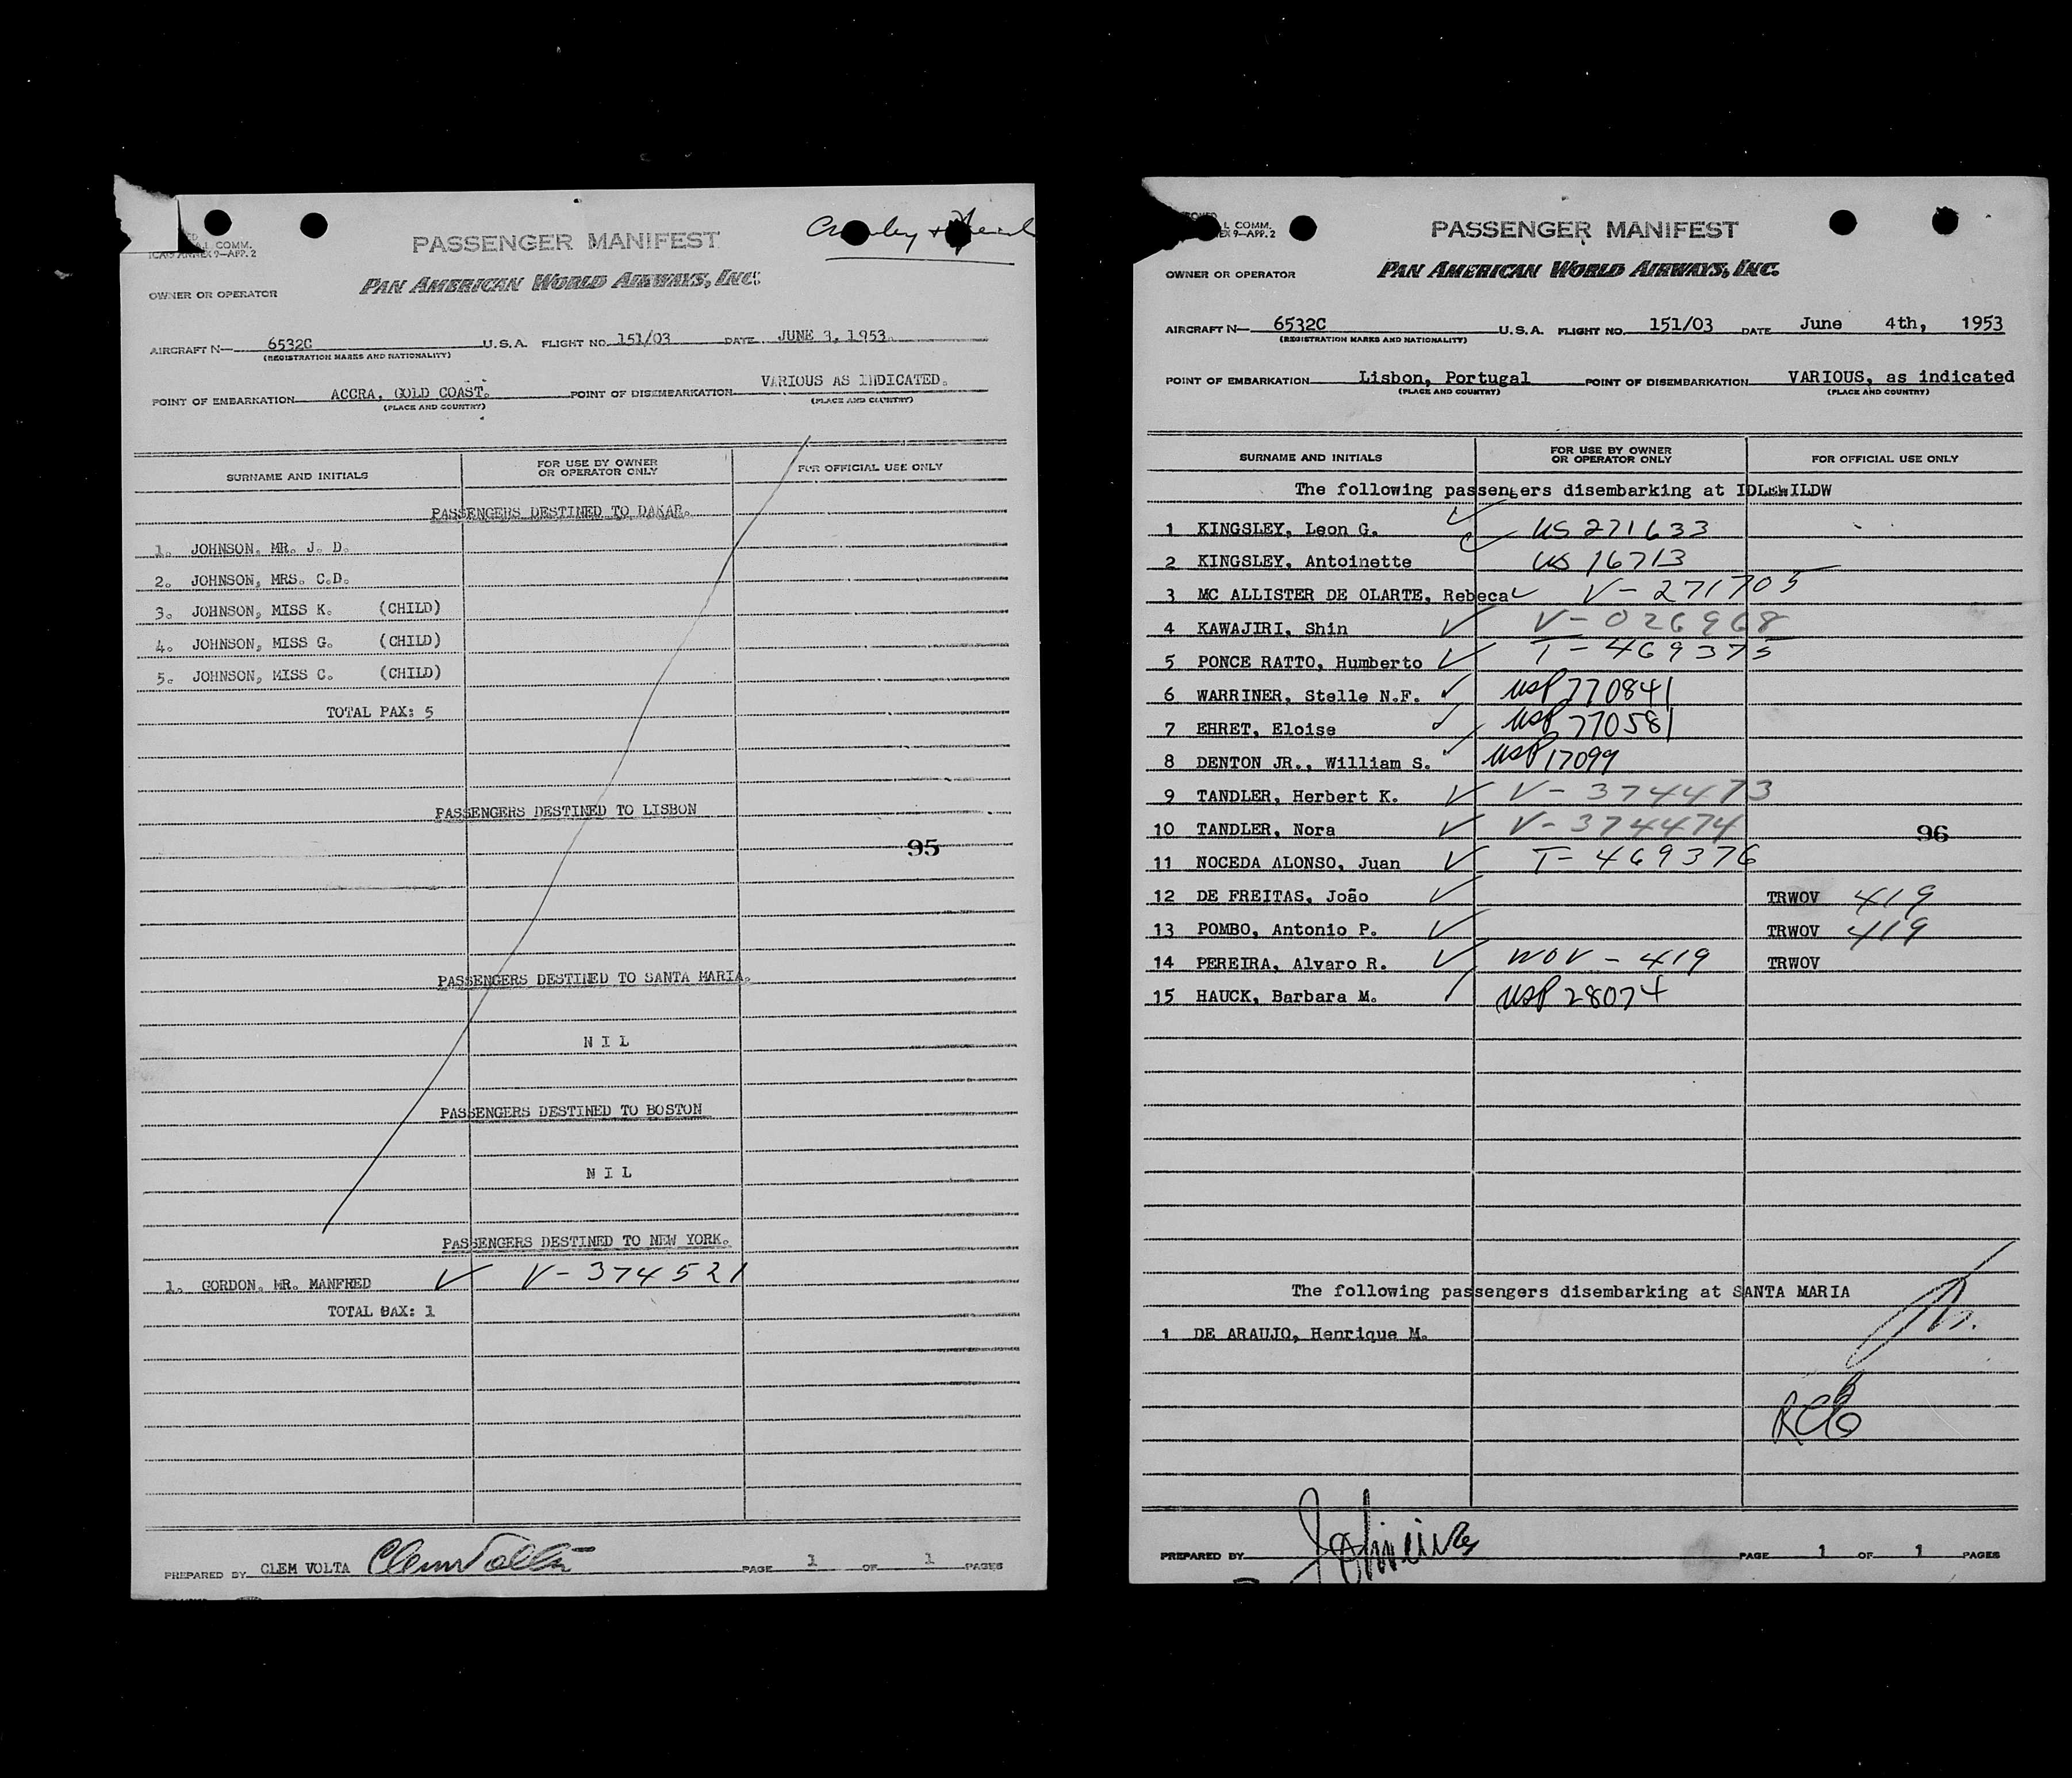 PASSENGER MANIFEST
L COMM.
ICAO ANNEX 9—APP. 2
OWNER OR OPERATOR
PAN AMERICAN WORLD AIRWAYS, INC.
AIRCRAFT N— 6532C U.S.A. FLIGHT NO. 151/03 DATE JUNE 3, 1953.
(REGISTRATION MARKS AND NATIONALITY)
POINT OF EMBARKATION ACCRA, GOLD COAST. POINT OF DISEMBARKATION VARIOUS AS INDICATED.
(PLACE AND COUNTRY) (PLACE AND COUNTRY)
SURNAME AND INITIALS FOR USE BY OWNER OR OPERATOR ONLY FOR OFFICIAL USE ONLY
PASSENGERS DESTINED TO DAKAR.
1. JOHNSON, MR. J. D.
2. JOHNSON, MRS. C.D.
3. JOHNSON, MISS K. (CHILD)
4. JOHNSON, MISS G. (CHILD)
5. JOHNSON, MISS C. (CHILD)
TOTAL PAX: 5
PASSENGERS DESTINED TO LISBON
95
PASSENGERS DESTINED TO SANTA MARIA.
N I L
PASSENGERS DESTINED TO BOSTON
N I L
PASSENGERS DESTINED TO NEW YORK.
1. GORDON, MR. MANFRED ✓ V-374521
TOTAL PAX: 1
PREPARED BY CLEM VOLTA Clem Volta PAGE 1 OF 1 PAGES
L COMM.
EX 9—APP. 2
PASSENGER MANIFEST
OWNER OR OPERATOR
PAN AMERICAN WORLD AIRWAYS, INC.
AIRCRAFT N— 6532C U.S.A. FLIGHT NO. 151/03 DATE June 4th, 1953
(REGISTRATION MARKS AND NATIONALITY)
POINT OF EMBARKATION Lisbon, Portugal POINT OF DISEMBARKATION VARIOUS, as indicated
(PLACE AND COUNTRY) (PLACE AND COUNTRY)
SURNAME AND INITIALS FOR USE BY OWNER OR OPERATOR ONLY FOR OFFICIAL USE ONLY
The following passengers disembarking at IDLEWILDW
1 KINGSLEY, Leon G. ✓ US 271633
2 KINGSLEY, Antoinette ✓ US 16713
3 MC ALLISTER DE OLARTE, Rebeca ✓ V-271705
4 KAWAJIRI, Shin ✓ V-026968
5 PONCE RATTO, Humberto ✓ T-469375
6 WARRINER, Stelle N.F. ✓ USP 770841
7 EHRET, Eloise ✓ USP 770581
8 DENTON JR., William S. ✓ USP 17099
9 TANDLER, Herbert K. ✓ V-374473
10 TANDLER, Nora ✓ V-374474
96
11 NOCEDA ALONSO, Juan ✓ T-469376
12 DE FREITAS, João ✓ TRWOV 419
13 POMBO, Antonio P. ✓ TRWOV 419
14 PEREIRA, Alvaro R. ✓ WOV-419 TRWOV
15 HAUCK, Barbara M. ✓ USP 28074
The following passengers disembarking at SANTA MARIA
1 DE ARAUJO, Henrique M.
PREPARED BY PAGE 1 OF 1 PAGES